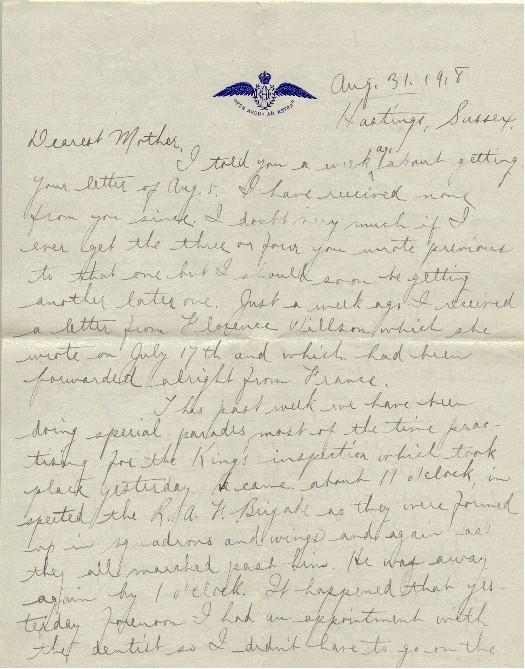 PER ARDUA AD ASTRA
Aug. 31. 1918
Hastings, Sussex.
Dearest Mother,
I told you a week ago about getting
your letter of Aug. 5. I have received none
from you since. I doubt very much if I
ever get the three or four you wrote previous
to that one but I should soon be getting
another later one. Just a week ago I received
a letter from Florence Willson which she
wrote on July 17th and which had been
forwarded alright from France.
This past week we have been
doing special parades most of the time prac-
tising for the King's inspection which took
place yesterday. He came about 11 o'clock, in
spected the R. A. F. Brigade as they were formed
up in squadrons and wings and again as
they all marched past him. He was away
again by 1 o'clock. It happened that yes-
terday forenoon I had an appointment with
the dentist so I didn't have to go on the